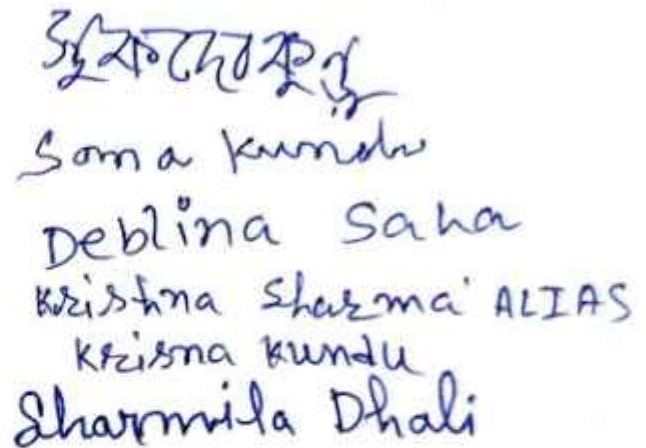 শুকদেব কুন্ডু
Soma Kundu
Deblina Saha
Krishna Sharma ALIAS
Krisna Kundu
Sharmila Dhali